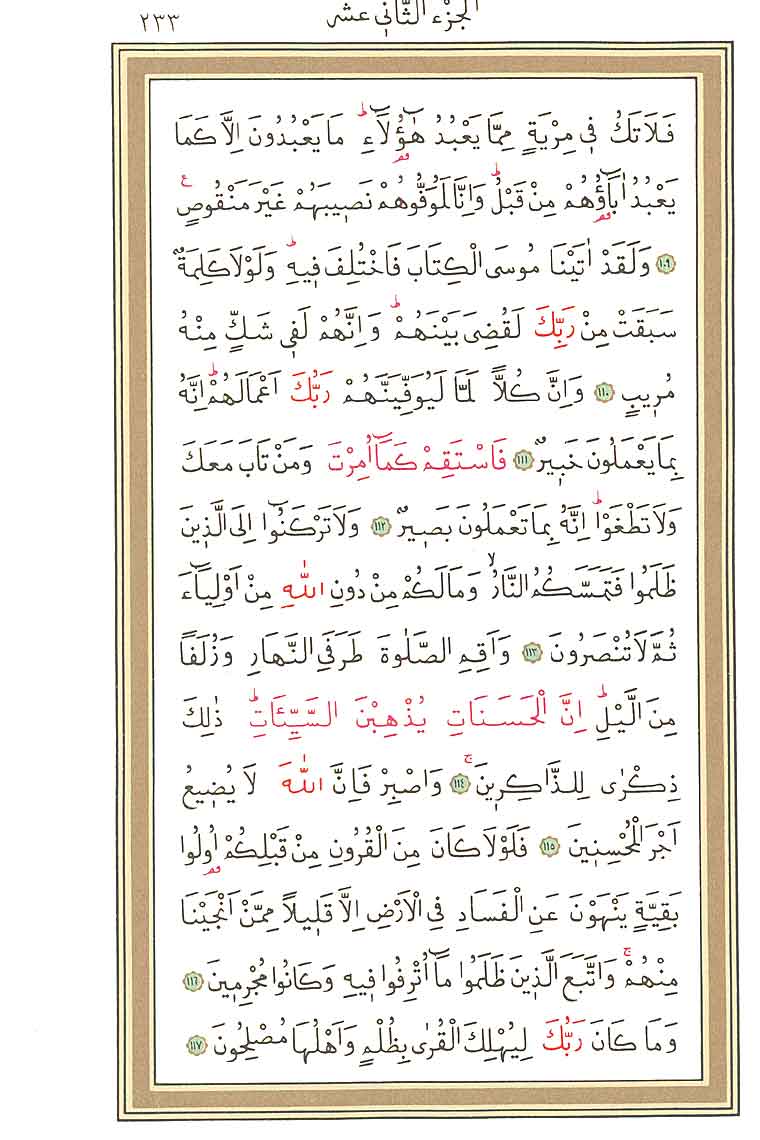 الجزء الثاني عشر ٢٣٣
فَلَا تَكُ فِي مِرْيَةٍ مِمَّا يَعْبُدُ هٰٓؤُ۬لَٓاءِۜ مَا يَعْبُدُونَ اِلَّا كَمَا
يَعْبُدُ اٰبَٓاؤُ۬هُمْ مِنْ قَبْلُۜ وَاِنَّا لَمُوَفُّوهُمْ نَص۪يبَهُمْ غَيْرَ مَنْقُوصٍ۟
﴿١٠٩﴾ وَلَقَدْ اٰتَيْنَا مُوسَى الْكِتَابَ فَاخْتُلِفَ ف۪يهِۜ وَلَوْلَا كَلِمَةٌ
سَبَقَتْ مِنْ رَبِّكَ لَقُضِيَ بَيْنَهُمْۜ وَاِنَّهُمْ لَف۪ي شَكٍّ مِنْهُ
مُر۪يبٍ ﴿١١٠﴾ وَاِنَّ كُلًّا لَمَّا لَيُوَفِّيَنَّهُمْ رَبُّكَ اَعْمَالَهُمْۜ اِنَّهُ
بِمَا يَعْمَلُونَ خَب۪يرٌ ﴿١١١﴾ فَاسْتَقِمْ كَمَٓا اُمِرْتَ وَمَنْ تَابَ مَعَكَ
وَلَا تَطْغَوْاۜ اِنَّهُ بِمَا تَعْمَلُونَ بَص۪يرٌ ﴿١١٢﴾ وَلَا تَرْكَنُٓوا اِلَى الَّذ۪ينَ
ظَلَمُوا فَتَمَسَّكُمُ النَّارُۙ وَمَا لَكُمْ مِنْ دُونِ اللّٰهِ مِنْ اَوْلِيَٓاءَ
ثُمَّ لَا تُنْصَرُونَ ﴿١١٣﴾ وَاَقِمِ الصَّلٰوةَ طَرَفَيِ النَّهَارِ وَزُلَفًا
مِنَ الَّيْلِۜ اِنَّ الْحَسَنَاتِ يُذْهِبْنَ السَّيِّـَٔاتِۜ ذٰلِكَ
ذِكْرٰى لِلذَّاكِر۪ينَۚ ﴿١١٤﴾ وَاصْبِرْ فَاِنَّ اللّٰهَ لَا يُض۪يعُ
اَجْرَ الْمُحْسِن۪ينَ ﴿١١٥﴾ فَلَوْلَا كَانَ مِنَ الْقُرُونِ مِنْ قَبْلِكُمْ اُو۬لُوا
بَقِيَّةٍ يَنْهَوْنَ عَنِ الْفَسَادِ فِي الْاَرْضِ اِلَّا قَل۪يلًا مِمَّنْ اَنْجَيْنَا
مِنْهُمْۚ وَاتَّبَعَ الَّذ۪ينَ ظَلَمُوا مَٓا اُتْرِفُوا ف۪يهِ وَكَانُوا مُجْرِم۪ينَ ﴿١١٦﴾
وَمَا كَانَ رَبُّكَ لِيُهْلِكَ الْقُرٰى بِظُلْمٍ وَاَهْلُهَا مُصْلِحُونَ ﴿١١٧﴾